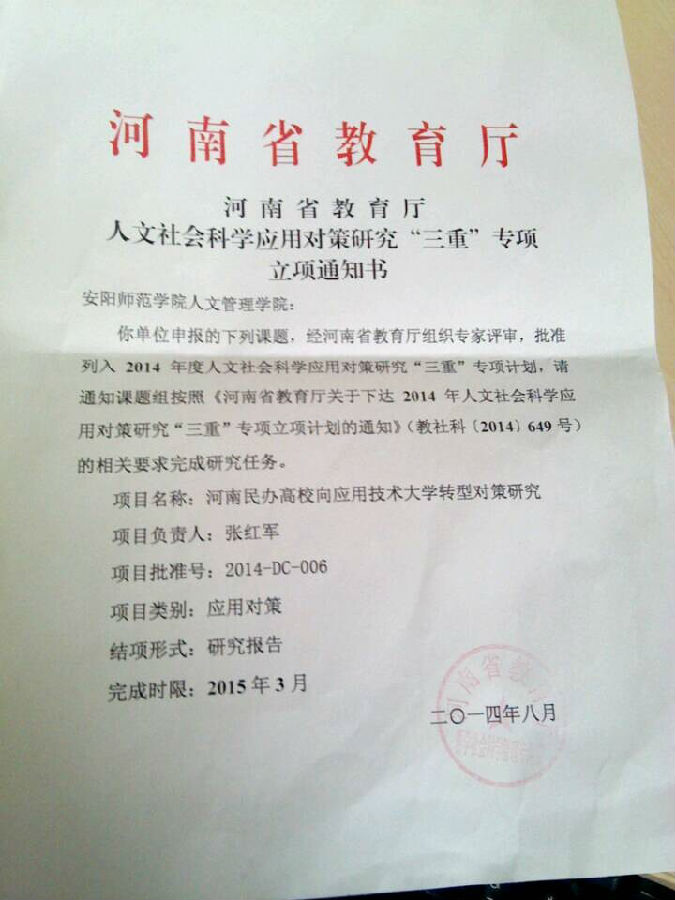 河南省教育厅
河南省教育厅
人文社会科学应用对策研究“三重”专项
立项通知书
安阳师范学院人文管理学院：
你单位申报的下列课题，经河南省教育厅组织专家评审，批准
列入 2014 年度人文社会科学应用对策研究“三重”专项计划，请
通知课题组按照《河南省教育厅关于下达 2014 年人文社会科学应
用对策研究“三重”专项立项计划的通知》（教社科〔2014〕649 号）
的相关要求完成研究任务。
项目名称：河南民办高校向应用技术大学转型对策研究
项目负责人：张红军
项目批准号：2014-DC-006
项目类别：应用对策
结项形式：研究报告
完成时限：2015 年 3 月
河南省教
二〇一四年八月